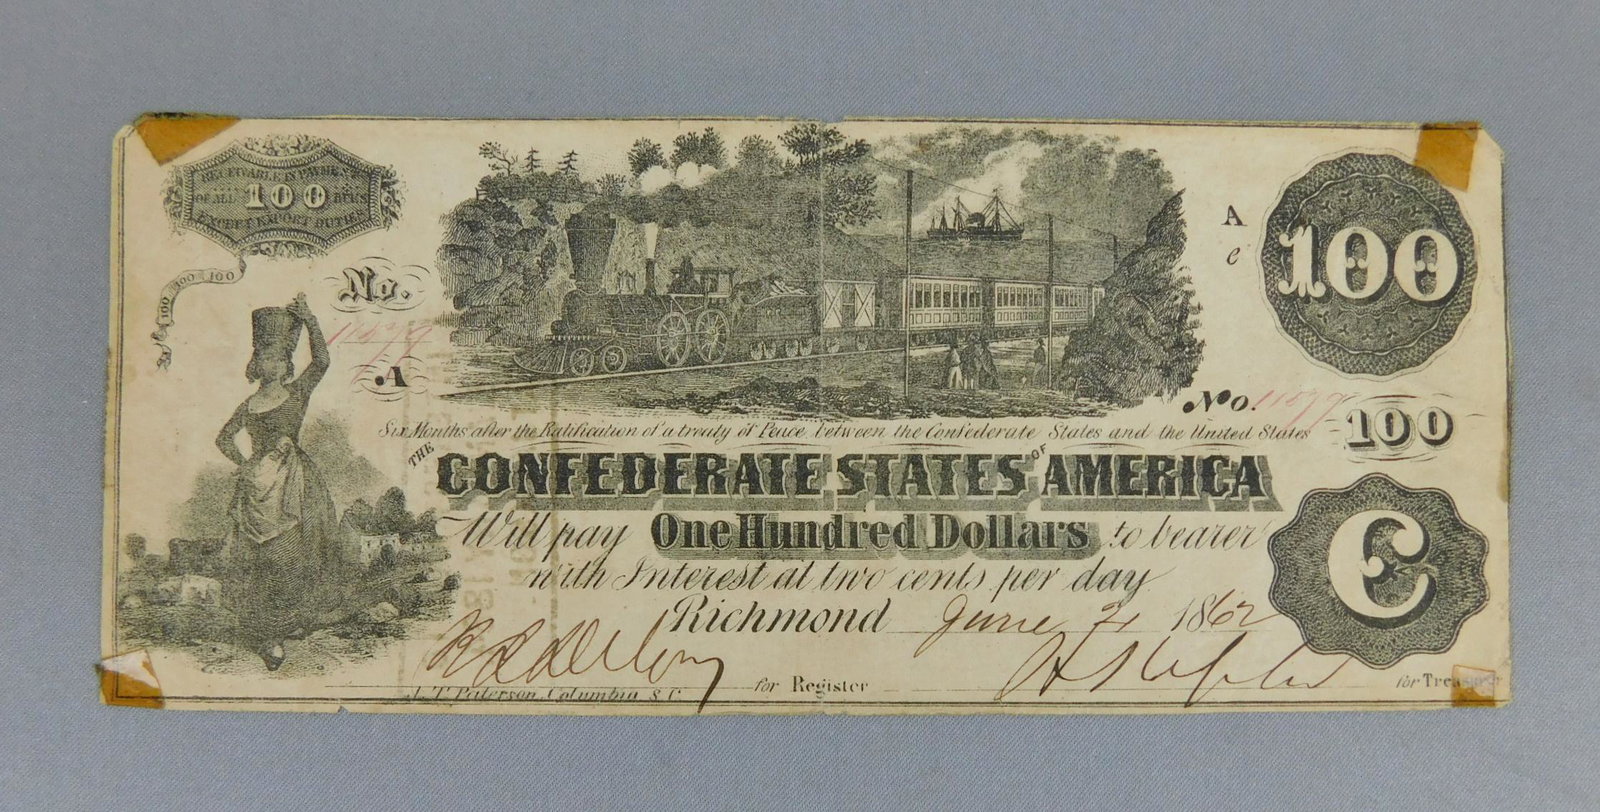 RECEIVABLE IN PAYMENT
OF ALL 100 DUES
EXCEPT EXPORT DUTIES
100 100 100
No.
11579
A
A
e
100
No. 11579
100
Six Months after the Ratification of a treaty of Peace between the Confederate States and the United States
THE CONFEDERATE STATES OF AMERICA
Will pay One Hundred Dollars to bearer
with Interest at two cents per day
Richmond June 1862
C
for Register
for Treasurer
J. T. Paterson, Columbia S.C.